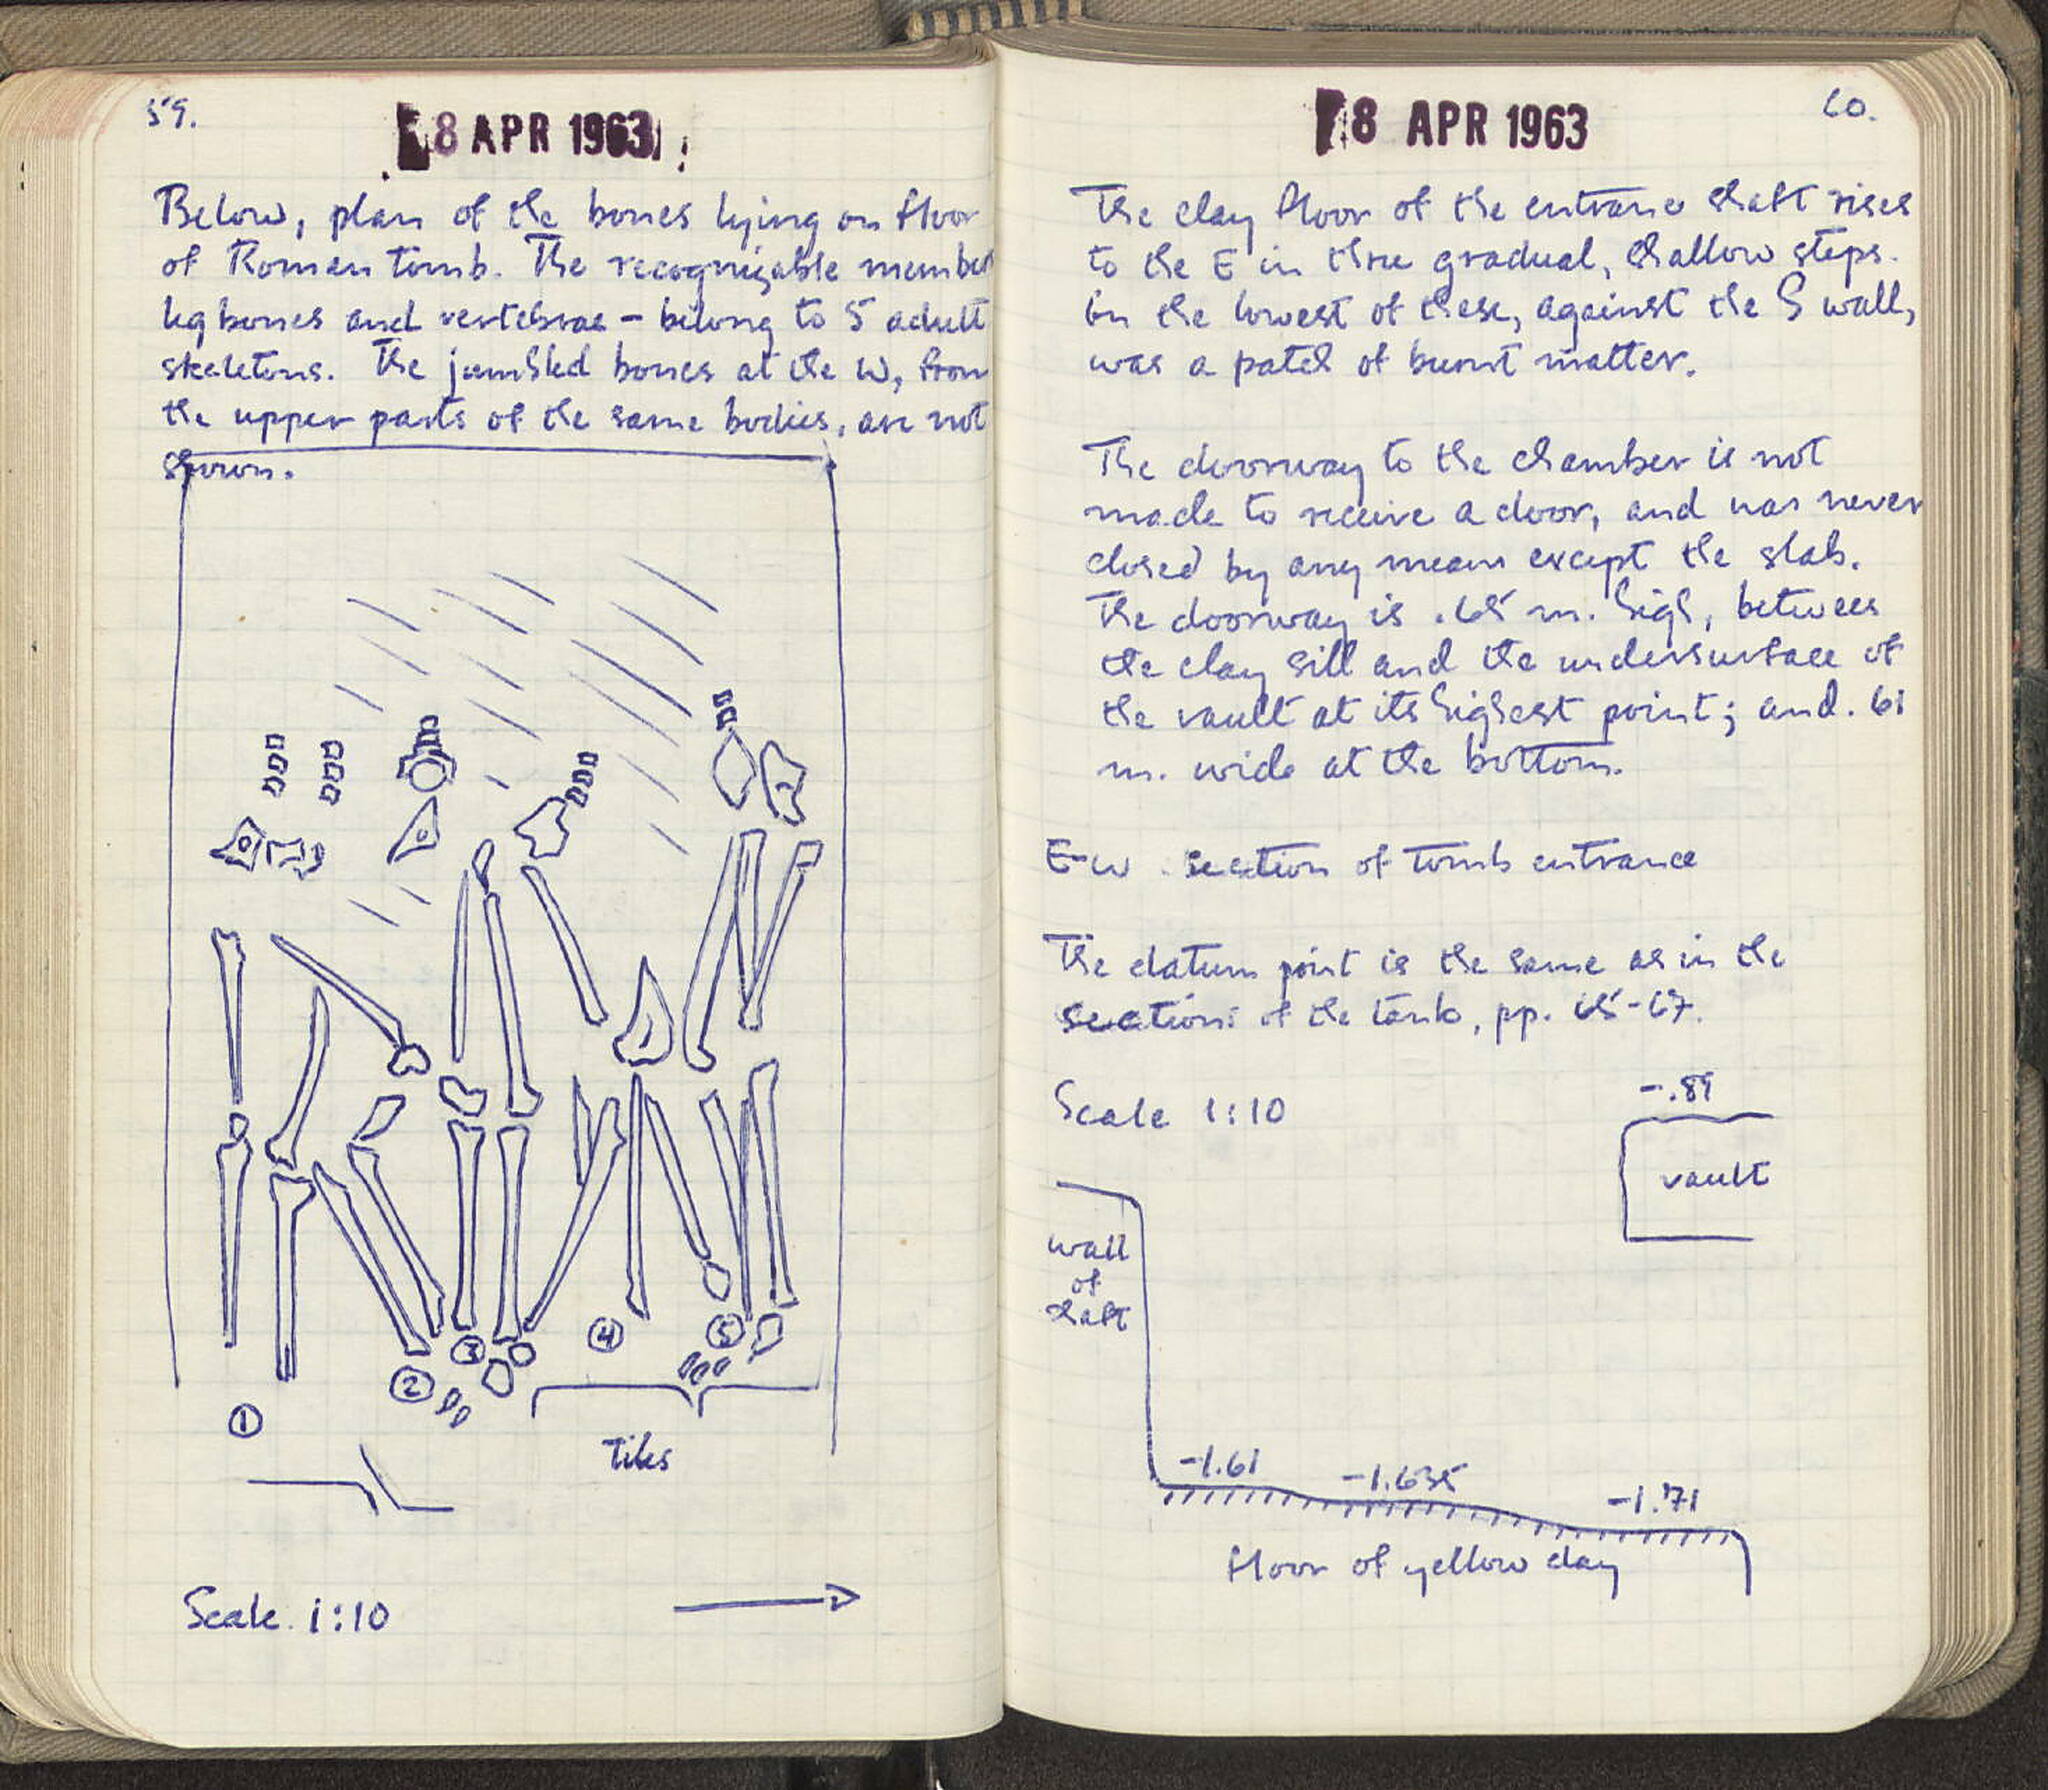 59.
8 APR 1963
Below, plan of the bones lying on floor
of Roman tomb. The recognizable members
leg bones and vertebrae – belong to 5 adult
skeletons. The jumbled bones at the W, from
the upper parts of the same bodies, are not
shown.
1
2
3
4
5
Tiles
Scale 1:10
60.
8 APR 1963
The clay floor of the entrance shaft rises
to the E in three gradual, shallow steps.
In the lowest of these, against the S wall,
was a patch of burnt matter.
The doorway to the chamber is not
made to receive a door, and was never
closed by any means except the slab.
The doorway is .65 m. high, between
the clay sill and the undersurface of
the vault at its highest point; and .61
m. wide at the bottom.
E-W section of tomb entrance
The datum point is the same as in the
sections of the tomb, pp. 65-67.
Scale 1:10
vault
wall
of
shaft
-1.61
-1.635
-1.71
floor of yellow clay